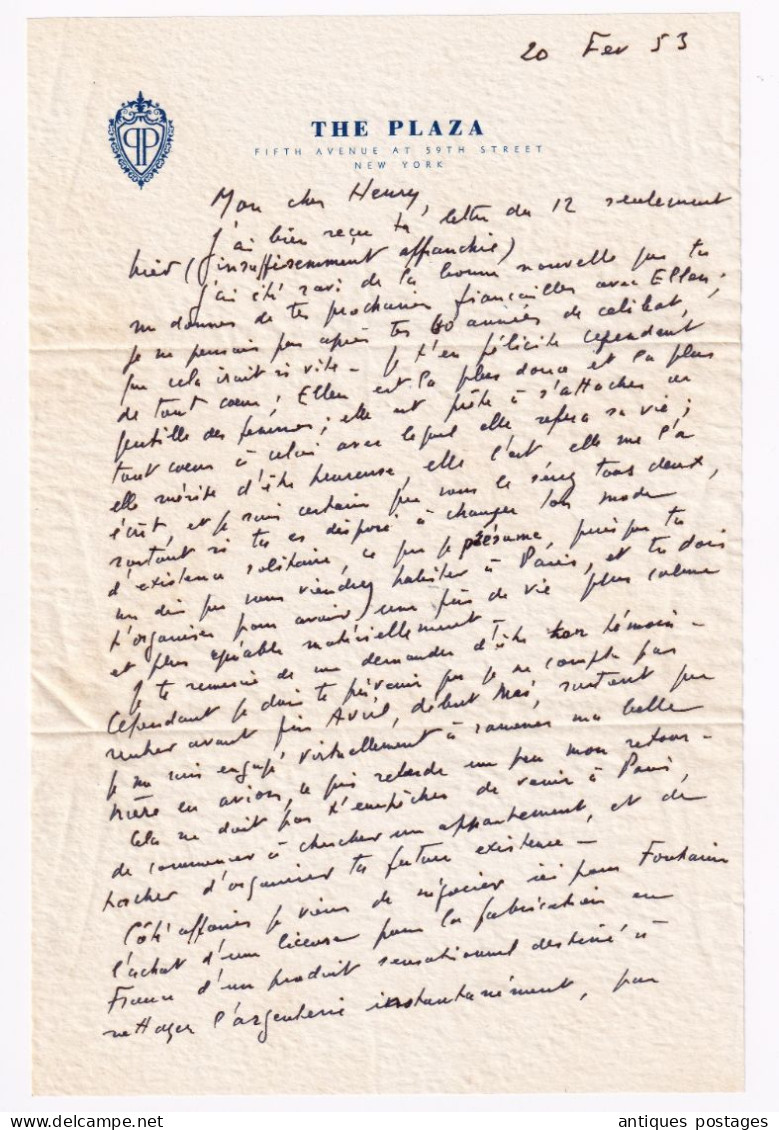 20 Fev 53
THE PLAZA
FIFTH AVENUE AT 59TH STREET
NEW YORK
Mon cher Henry,
J'ai bien reçu ta lettre du 12 seulement
hier (insuffisamment affranchie)
J'ai été ravi de la bonne nouvelle que tu
me donnes de tes prochaines fiançailles avec Ellen ;
je ne pensais pas après tes 60 années de célibat,
que cela irait si vite - Je t'en félicite cependant
de tout coeur ; Ellen est la plus douce et la plus
gentille des femmes ; elle est prête à s'attacher de
tout coeur à celui avec lequel elle refera sa vie ;
elle mérite d'être heureuse, elle l'est elle me l'a
écrit, et je suis certain que vous le serez tous deux,
surtout si tu es disposé à changer ton mode
d'existence solitaire, ce que je présume, puisque tu
me dis que vous viendrez habiter à Paris, et tu dois
t'organiser pour avoir une fin de vie plus calme
et plus agréable matériellement -
Je te remercie de me demander d'être ton témoin -
Cependant je dois te prévenir que je ne compte pas
rentrer avant fin Avril, début Mai, surtout que
je me suis engagé virtuellement à ramener ma belle
mère en avion, ce qui retarde un peu mon retour -
Cela ne doit pas t'empêcher de venir à Paris,
de commencer à chercher un appartement, et de
tacher d'organiser ta future existence -
Côté affaires je viens de négocier ici pour Fontaine
l'achat d'une license pour la fabrication en
France d'un produit sensationnel destiné à
nettoyer l'argenterie instantanément, par
antiques postages